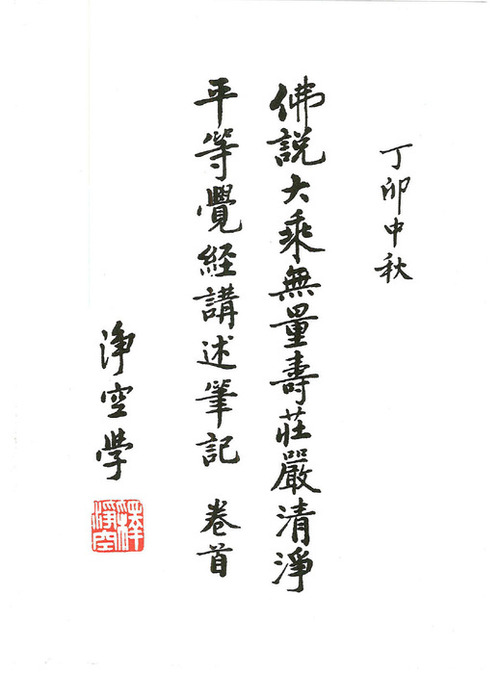 丁卯中秋
佛説大乘無量壽莊嚴清淨
平等覺經講述筆記 卷首
淨空学
釋淨空